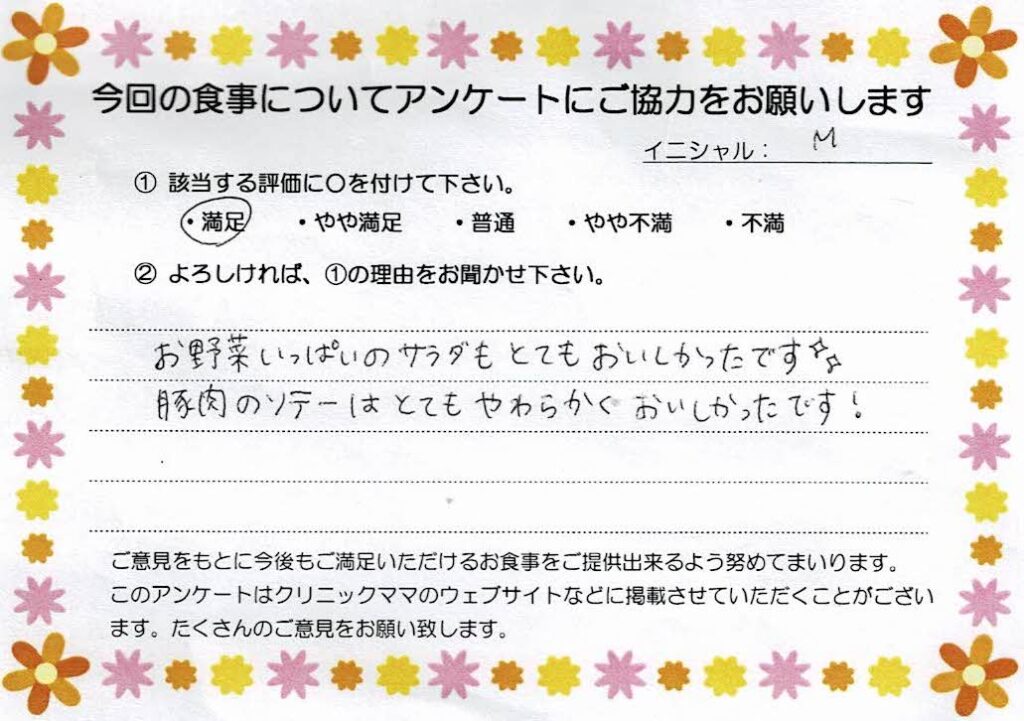 今回の食事についてアンケートにご協力をお願いします
イニシャル： M
① 該当する評価に〇を付けて下さい。
・満足 ・やや満足 ・普通 ・やや不満 ・不満
② よろしければ、①の理由をお聞かせ下さい。
お野菜いっぱいのサラダもとてもおいしかったです✨
豚肉のソテーはとてもやわらかくおいしかったです！
ご意見をもとに今後もご満足いただけるお食事をご提供出来るよう努めてまいります。
このアンケートはクリニックママのウェブサイトなどに掲載させていただくことがござい
ます。たくさんのご意見をお願い致します。